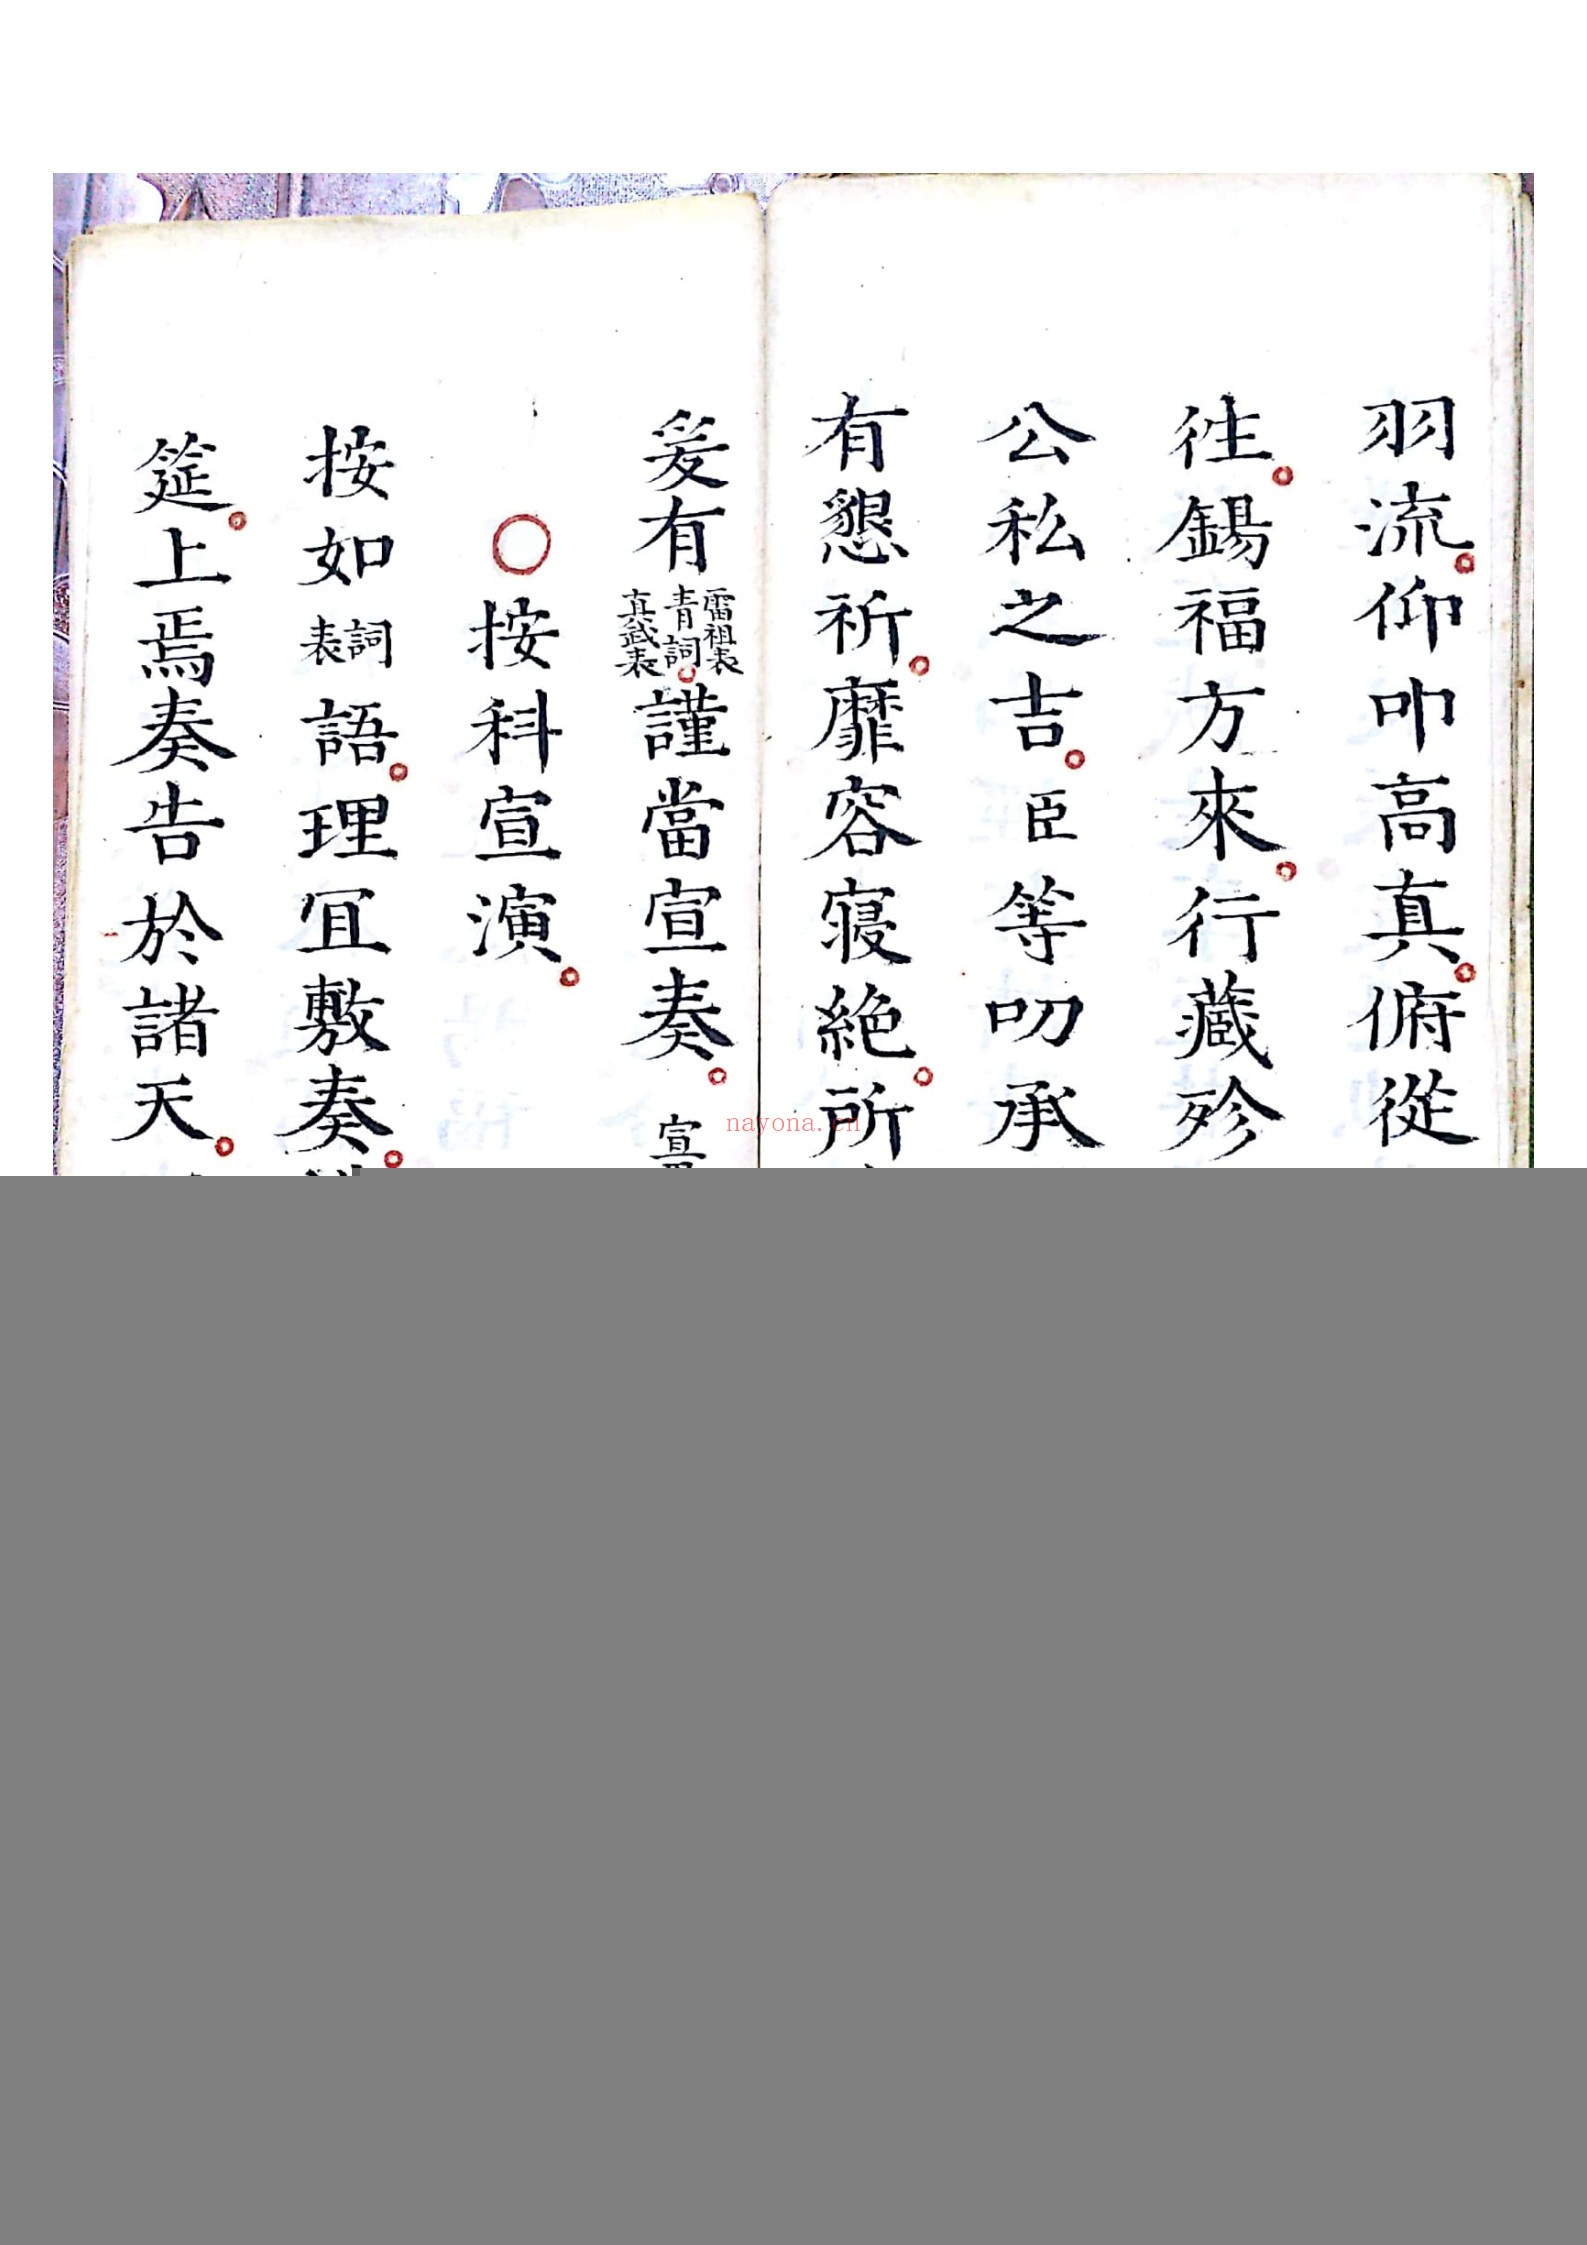 羽流仰叩高真俯從
徃錫福方來行藏殄
公私之吉臣等叨承
有懇祈靡容寢絶所
爰有雷祖表青詞真武表謹當宣奏 宣
〇按科宣演
按如詞表語理冝敷奏
筵上焉奏告於諸天
nayona.cn